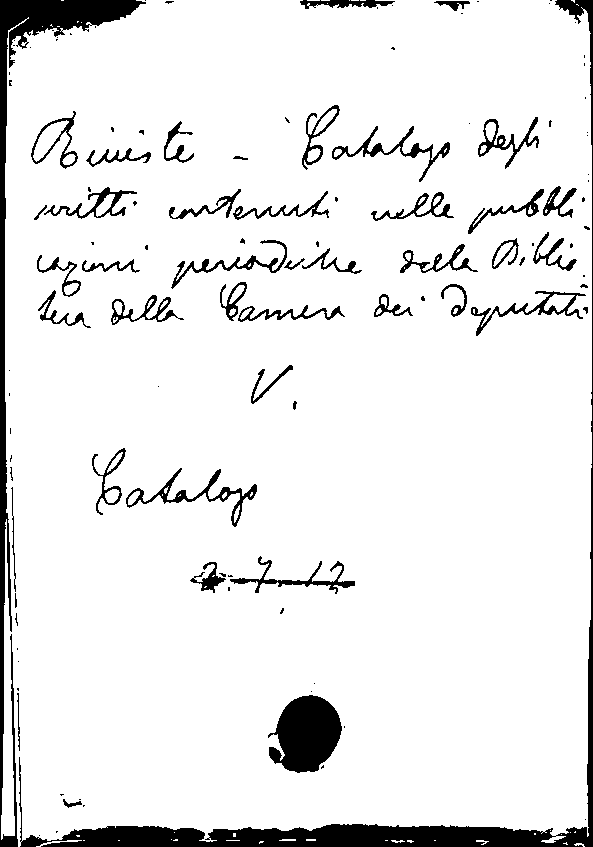 Riviste - Catalogo degli
scritti contenuti nelle pubbli
cazioni periodiche della Biblio
teca della Camera dei Deputati
V.
Catalogo
2.7.12